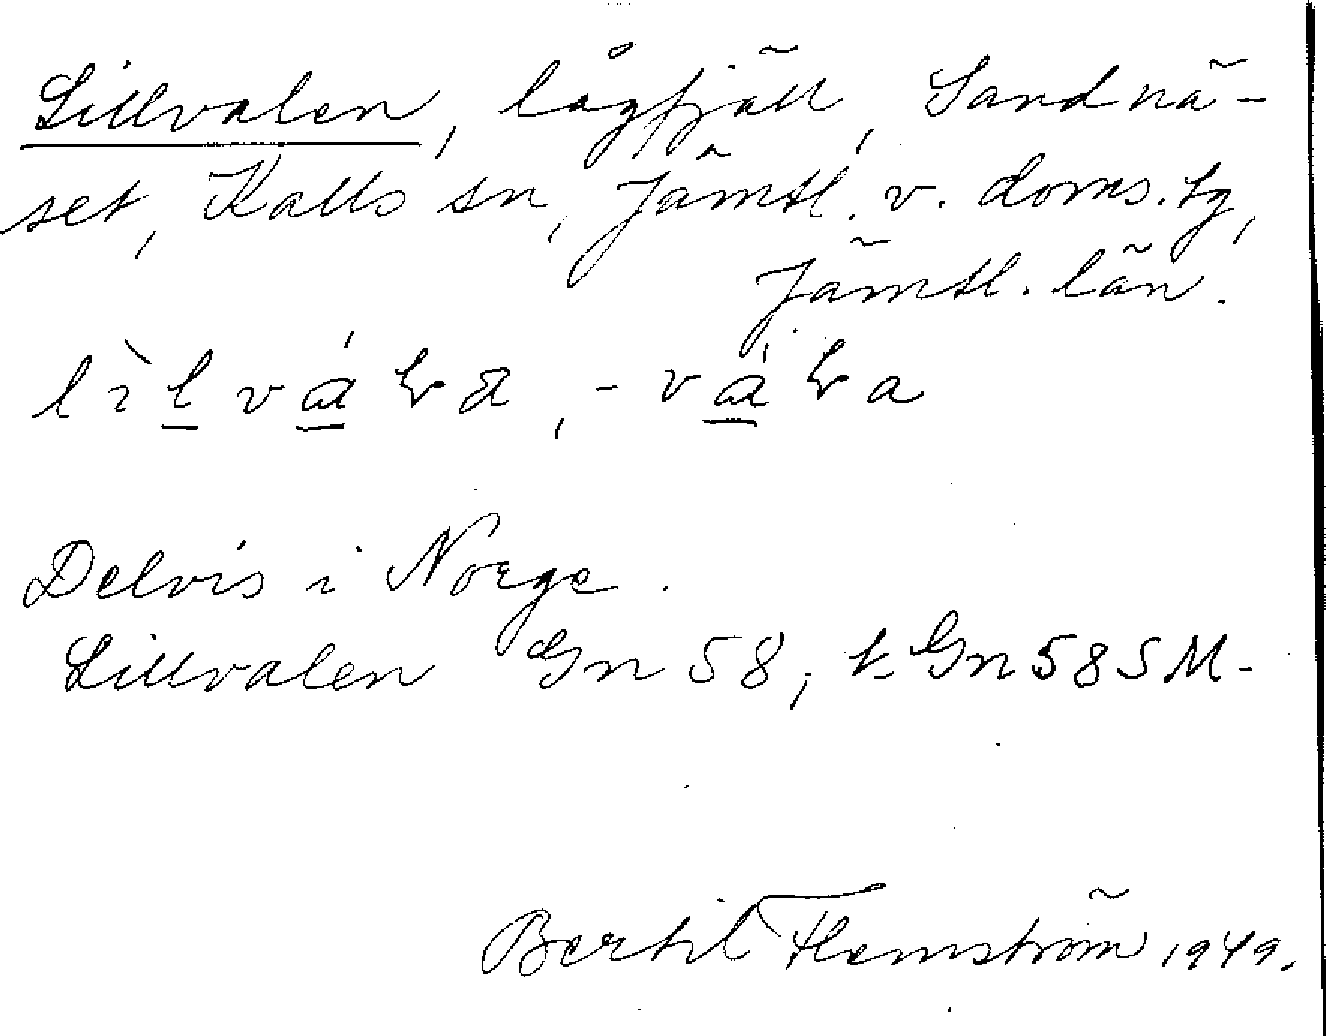 Lillvalen, lågfjäll, Sandnä-
set, Kalls sn, Jämtl. v. doms. tg,
Jämtl. län.
Delvis i Norge.
Lillvalen Gn 58, k Gn 58 SM-
Bertil Flemström 1949.